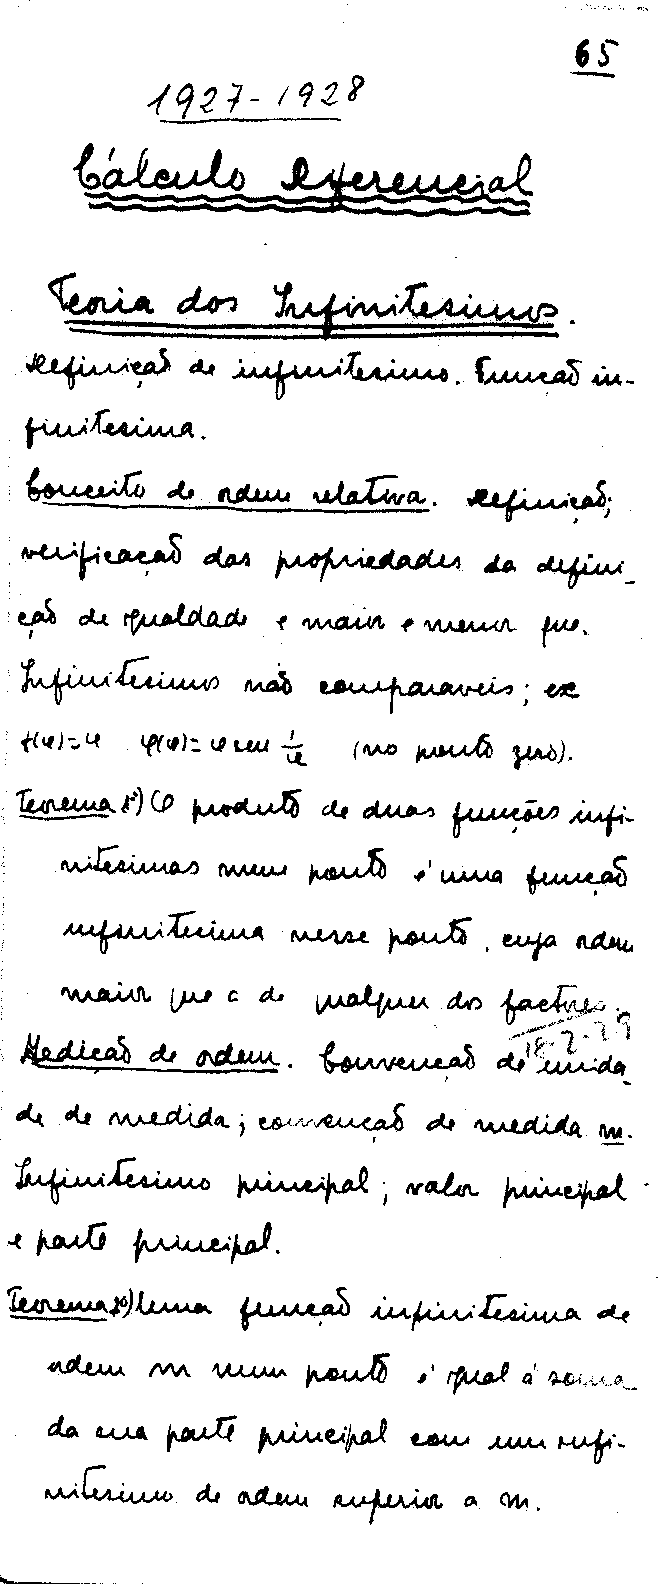 65
1927-1928
Cálculo Diferencial
Teoria dos Infinitesimos.
Definição de infinitesimo. Função in-
finitesima.
Conceito de ordem relativa. Definição;
verificação das propriedades da defini-
ção de igualdade e maior e menor que.
Infinitesimos não comparaveis; ex
f(φ)=φ φ(φ)=φ sen 1/φ (no ponto zero).
Teorema 1º) O produto de duas funções infi-
nitesimas num ponto é uma função
infinitesima nesse ponto, cuja ordem
maior que a de qualquer dos factores.
18-2-29
Medição de ordem. Convenção de unida-
de de medida; convenção de medida m.
Infinitesimo principal; valor principal
e parte principal.
Teorema 2º) Uma função infinitesima de
ordem m num ponto é igual á soma
da sua parte principal com um infi-
nitesimo de ordem superior a m.